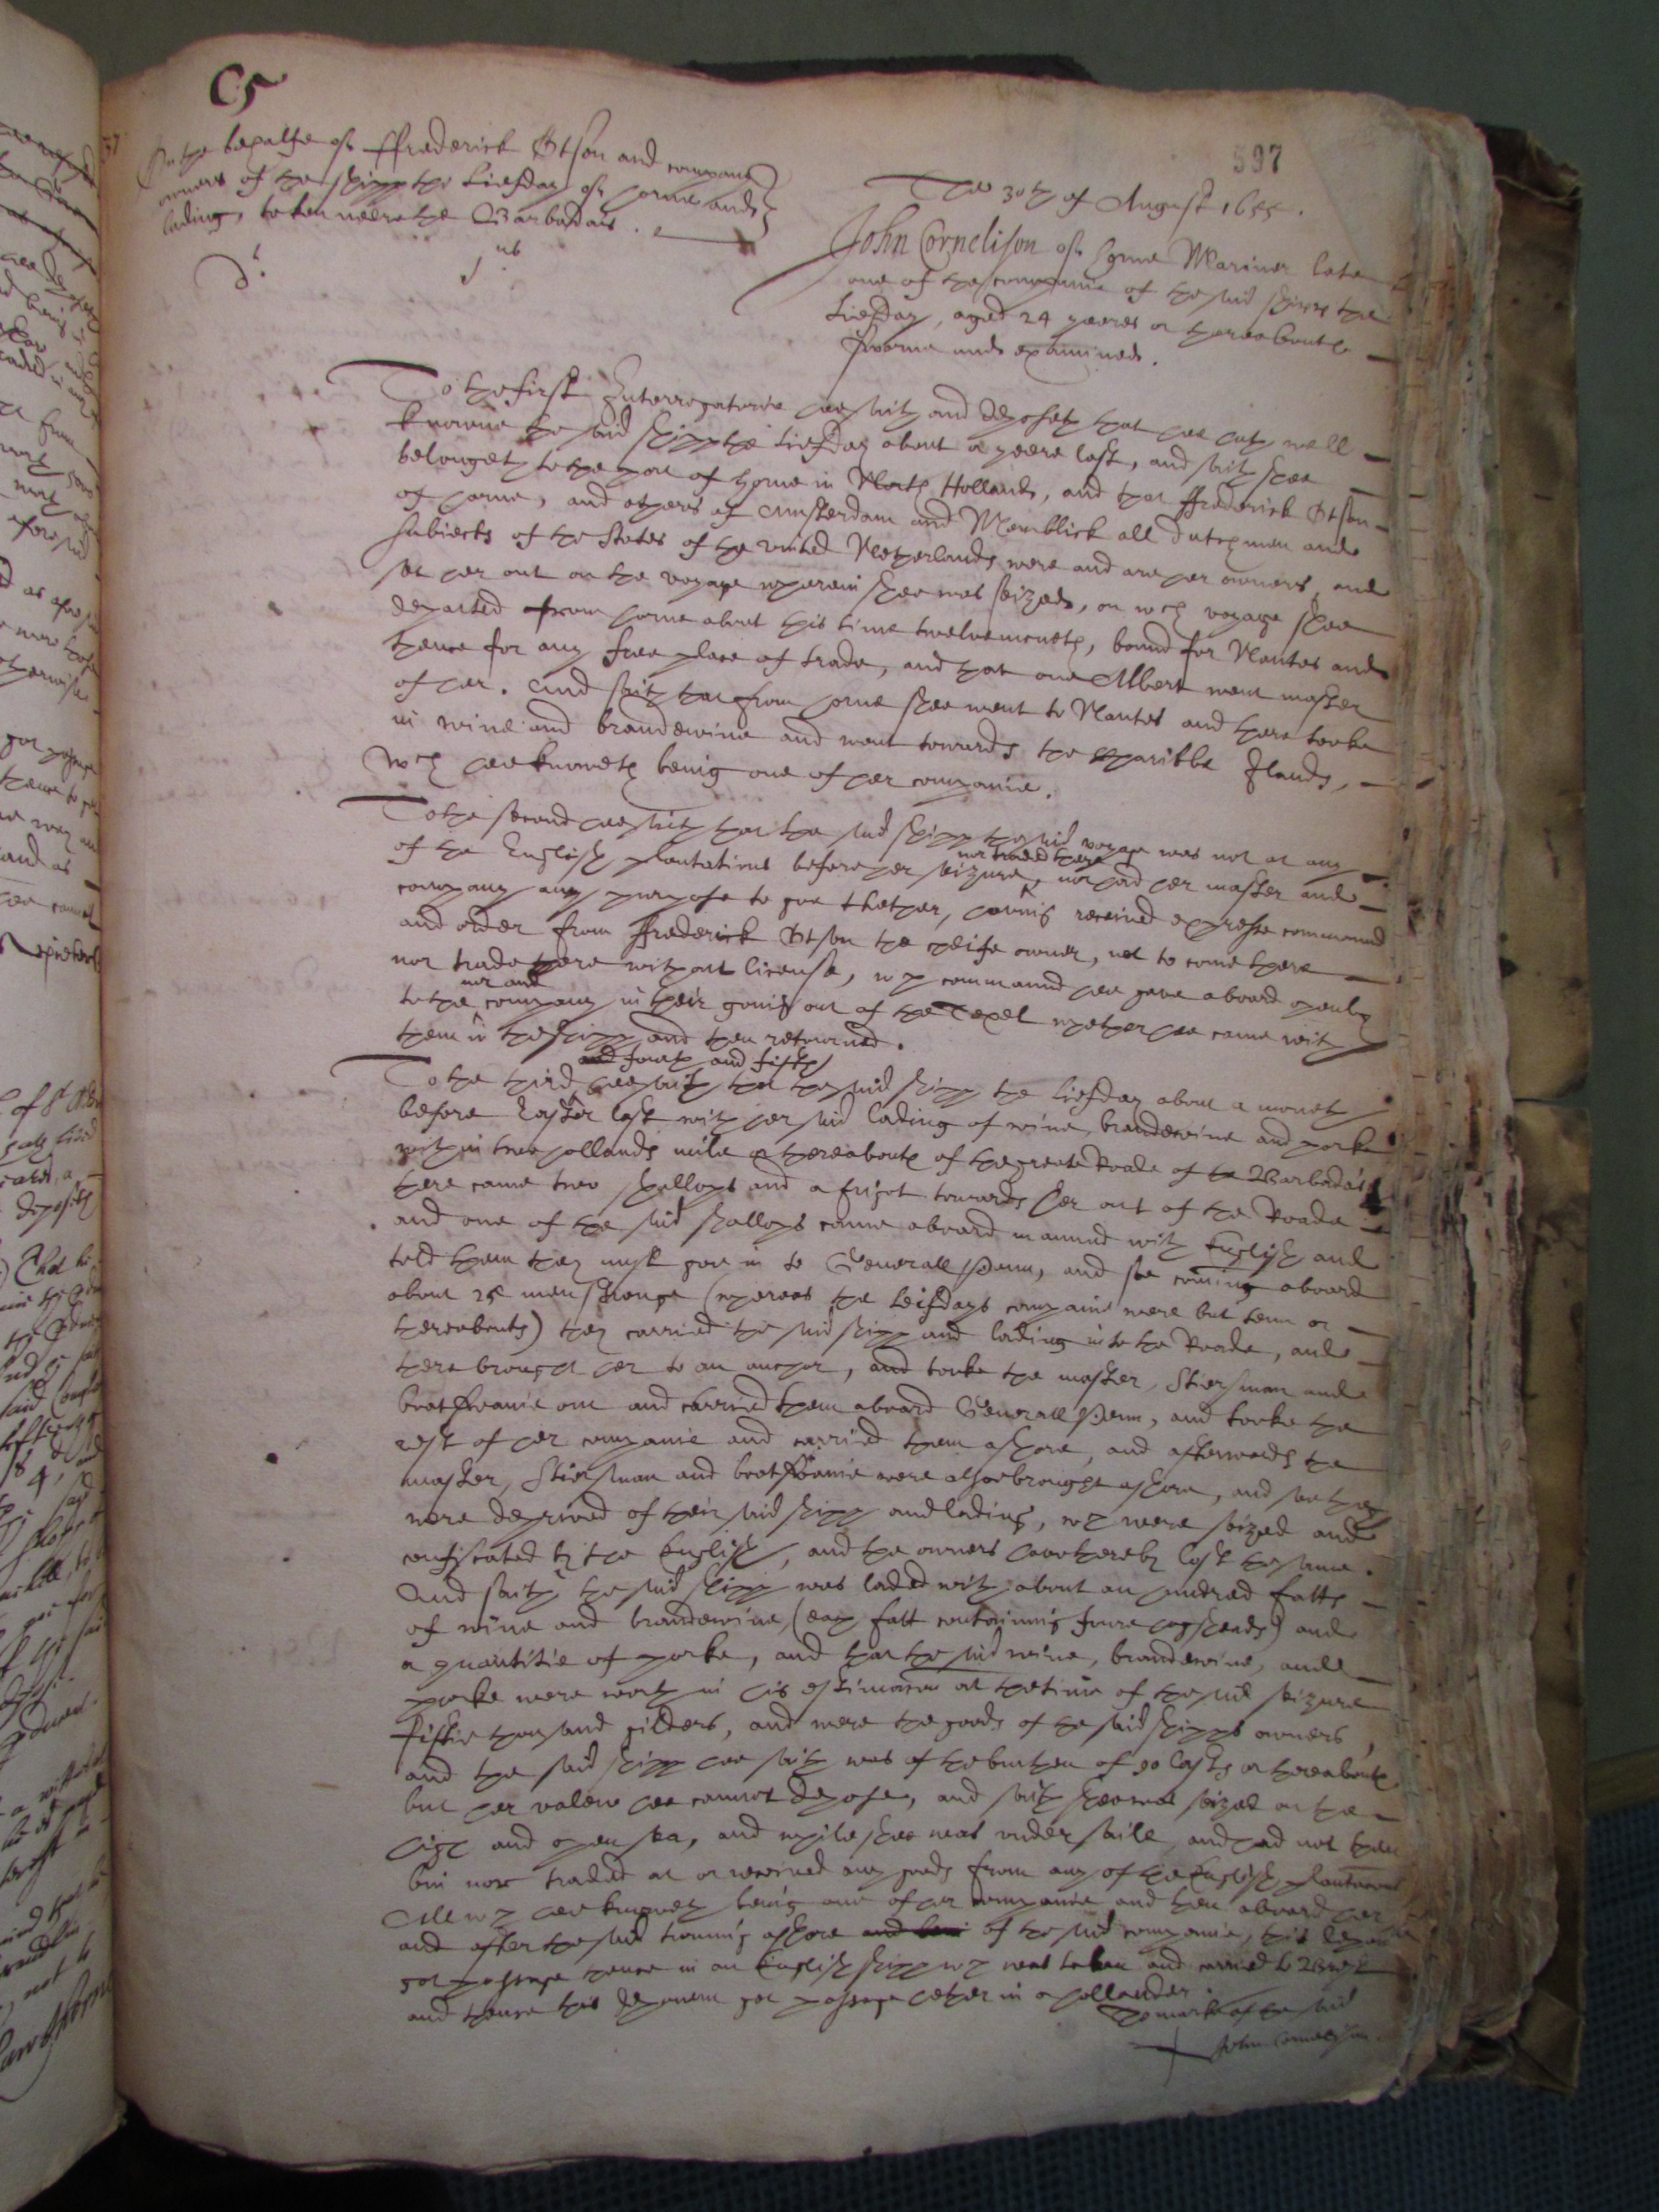 C5
597
On the behalfe of ffrederick Otson and company
owners of the shipp the Liefday of horne and
lading, taken neere the Barbadais.
The 30th of August 1655.
John Cornelison of horne Mariner late
one of the companie of the said shipp the
Liefday, aged 24 yeeres or thereabouts
sworne and examined.
To the first Interrogatorie hee saith and deposeth that hee hath well
knowne the said shipp the Liefday about a yeere last, and saith shee
belongeth to the port of horne in North Holland, and that ffrederick Otson
of horne, and others of Amsterdam and Memblick all dutchmen and
subiects of the States of the united Netherlands were and are her owners, and
set her out on the voyage wherein shee was seized, on wch voyage shee
departed from horne about this time twelvemoneth, bound for Nantes and
thence for any free place of trade, and that one Albert went master
of her. And saith that from horne shee went to Nantes and there tooke
in wine and brandewine and went towards the Charibbe Ilands,
wch hee knoweth being one of her companie.
To the second hee saith that the said shipp the said voyage was not at any
of the English plantations before her seizure, nor traded there nor had her master and
company any purpose to goe thether, having received expresse command
and order from ffrederick Otson the cheife owner, not to come there
nor trade there without license, wch command hee gave aboard openly
to the mr and company in their going out of the Texel whether hee came with
them in the shipp and then returned.
To the third and fourth and fifth hee saith that the said shipp the Liefday about a moneth
before Easter last with her said lading of wine, brandewine and porke
within two hollands mile or thereabouts of the greate Roade of the Barbada's
there came two shallops and a frigot towards her out of the Roade
and one of the said shallops came aboard manned with English and
told them they must goe in to Generall Penn, and soe coming aboard
about 25 men stronge (whereas the Leifdays companie were but tenn or
thereabouts) they carried the said shipp and lading into the Roade, and
there brought her to an anchor, and tooke the master, Stiersman and
boatswaine out and carried them aboard Generall Penn, and tooke the
rest of her companie and carried them ashore, and afterwards the
master, Stiersman and boatswaine were alsoe brought ashore, and soe they
were deprived of their said shipp and lading, wch were seized and
confiscated by the English, and the owners have thereby lost the same.
And saith the said shipp was laded with about an hundred fatts
of wine and brandewine, (each fatt containing foure hogsheads) and
a quantitie of porke, and that the said wine, brandewine, and
porke were worth in his estimation at the time of the said seizure
fiftie thousand gilders, and were the goods of the said shipps owners,
and the said shipp hee saith was of the burthen of 90 lasts or thereabouts
but her valew hee cannot depose, and saith shee was seized on the
high and open sea, and while shee was under saile, and had not then
bin nor traded at or received any goods from any of the English plantations
All wch hee knoweth being one of her companie and then aboard her
and after the said turning ashore of the said companie, this deponent
got passage thence in an English shipp wch was taken and carried to Brest
and thence this deponent got passage hether in a hollander.
The marke of the said
John Cornelison